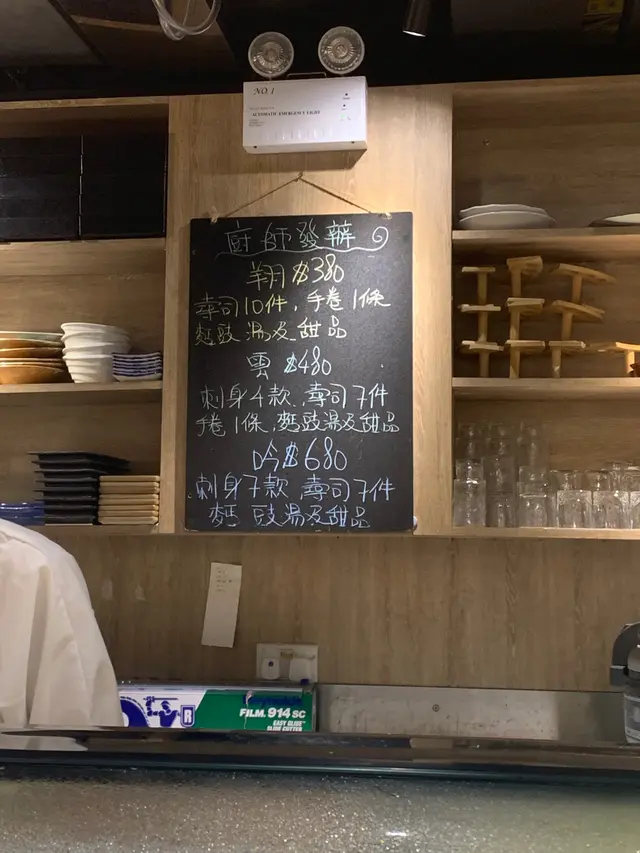 NO. 1
AUTOMATIC EMERGENCY LIGHT
廚師發辦
翔 $380
壽司10件, 手卷1條
麵豉湯及甜品
雲 $480
刺身4款, 壽司7件
手卷1條, 麵豉湯及甜品
吟 $680
刺身7款 壽司7件
麵豉湯及甜品
R
FILM. 914 SC
EASY GLIDE
SLIDE CUTTER